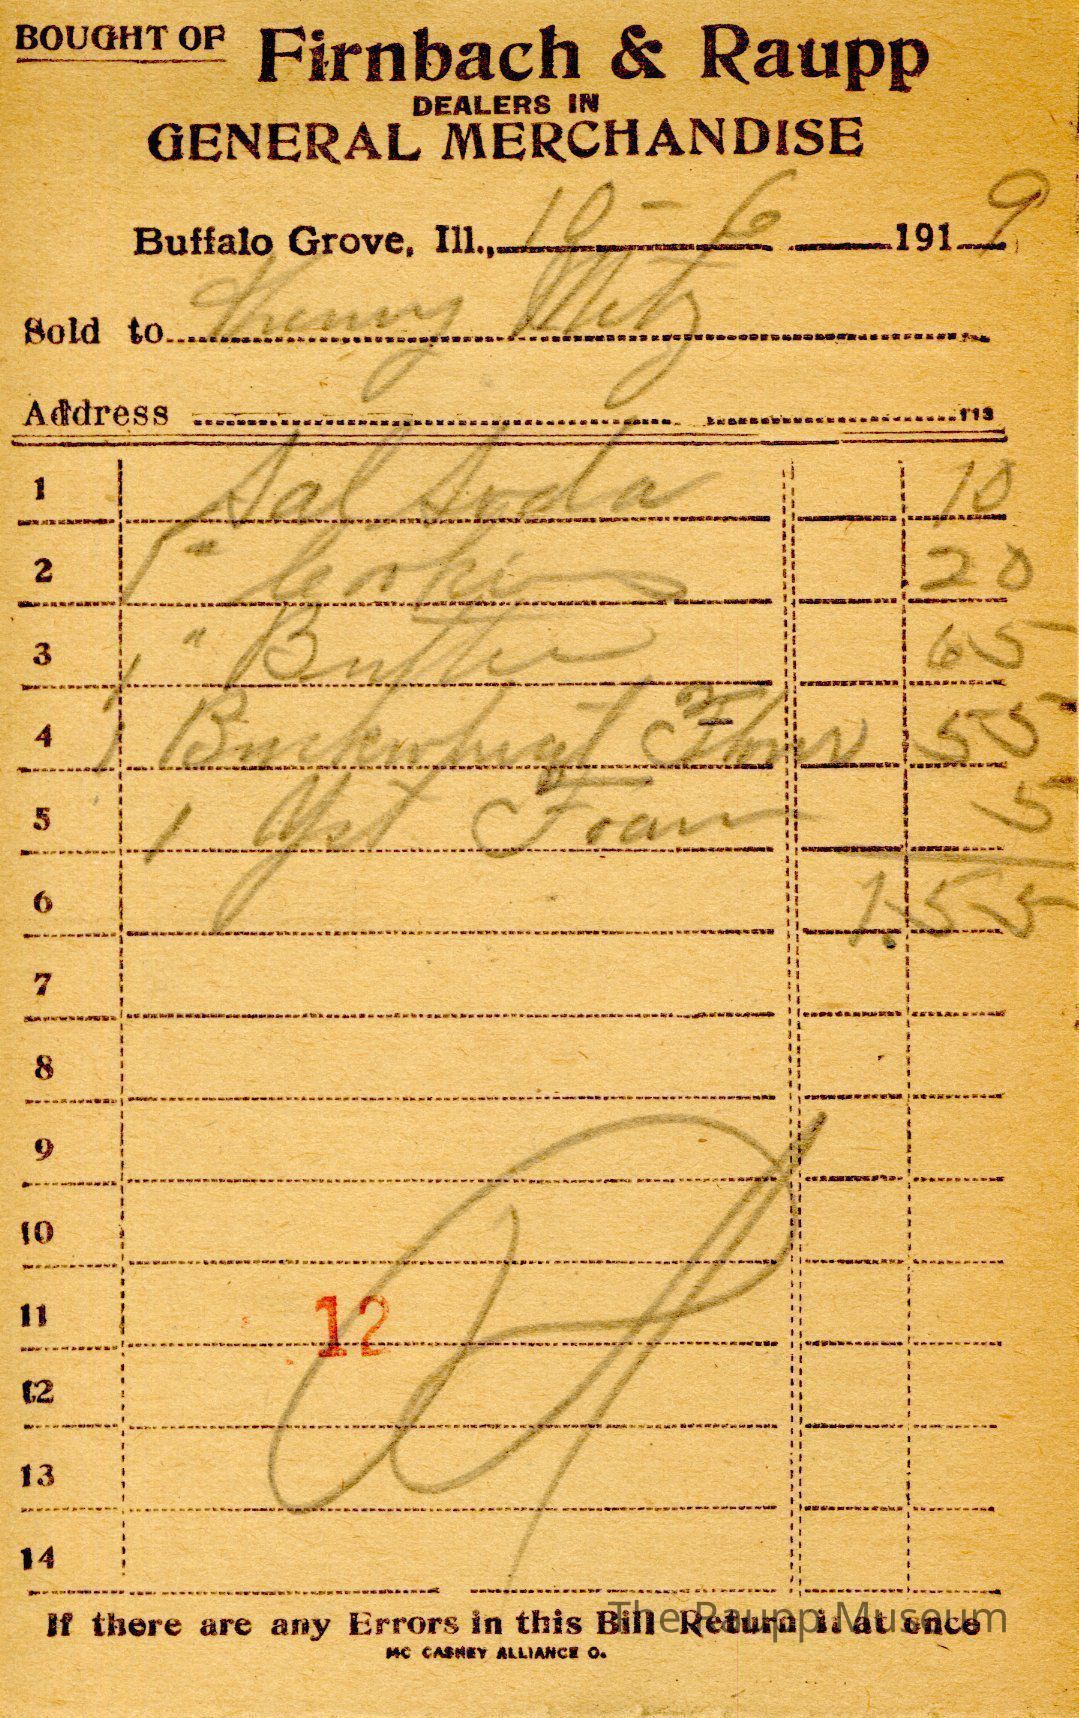 BOUGHT OF Firnbach & Raupp
DEALERS IN
GENERAL MERCHANDISE
Buffalo Grove, Ill., 10-6 1919
Sold to Henry Metz
Address 113
1 Sal Soda 10
2 1 " Cookies 20
3 1 " Butter 65
4 1 Buckwheat Flour 55
5 1 Yst Foam 5
6 1.55
7
8
9
10
11
12
12
13
14
If there are any Errors in this Bill Return i. at once
The Raupp Museum
MC CASKEY ALLIANCE O.